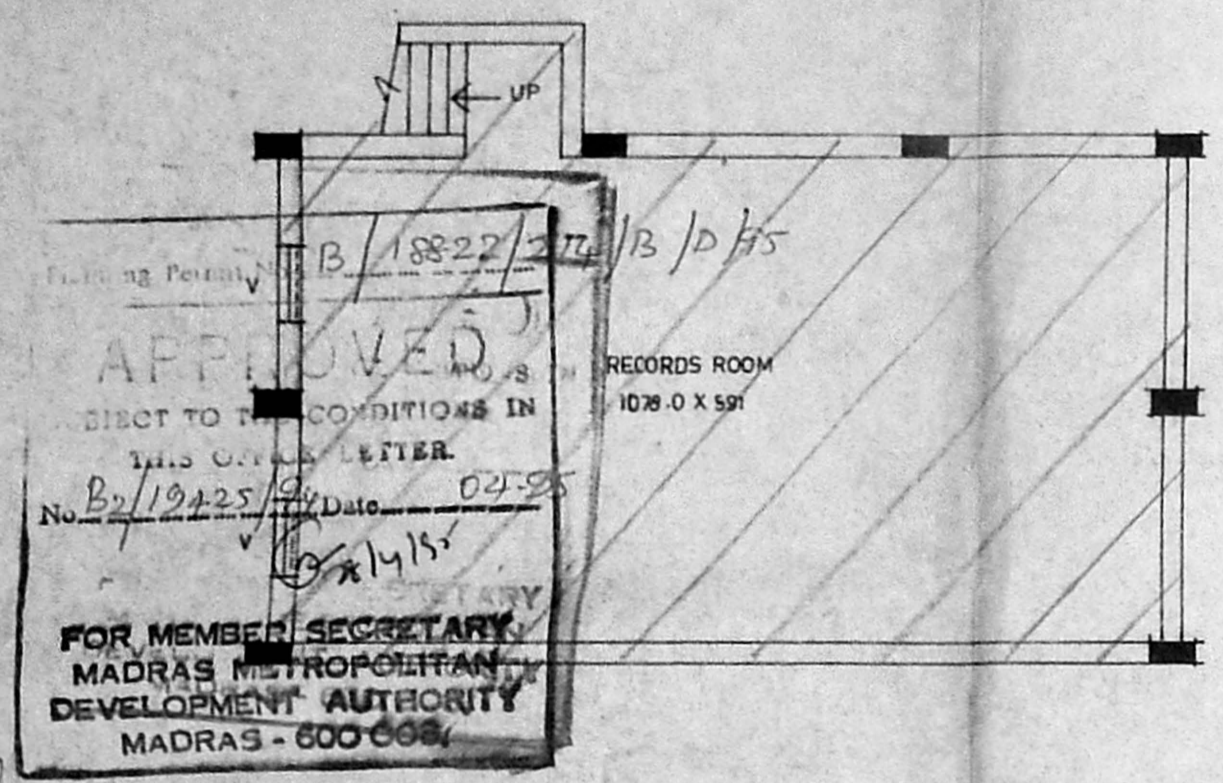 UP
Planning Permit No. B/18822/274/B/D/95
V
APPROVED
SUBJECT TO THE CONDITIONS IN
THIS OFFICE LETTER.
No. B2/19425/94 Date 04-95
V
/4/95
FOR MEMBER SECRETARY
MADRAS METROPOLITAN
DEVELOPMENT AUTHORITY
MADRAS - 600 008
RECORDS ROOM
1078.0 X 591